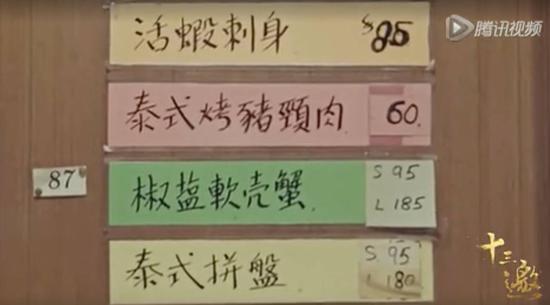 活蝦刺身 $85
腾讯视频
泰式烤豬頸肉 60.
87
椒盐軟壳蟹 S 95
L 185
泰式拼盤 S. 95
L 180
十三邀